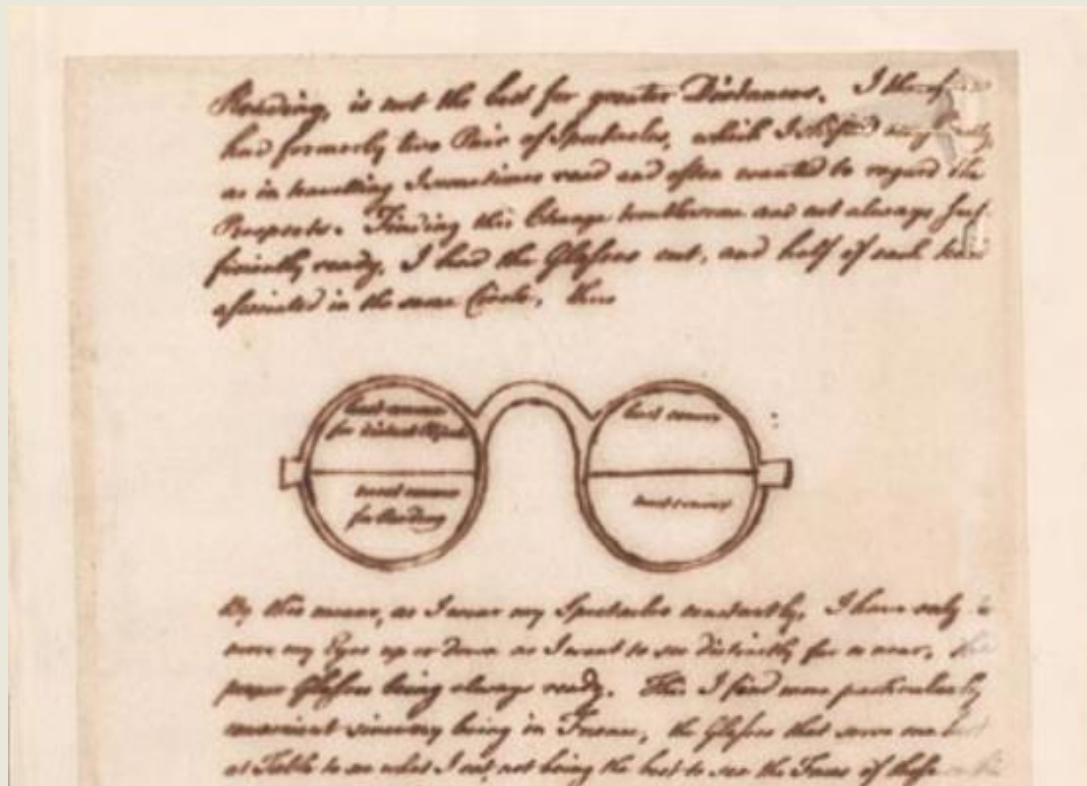 Reading, is not the best for greater Distances. I therefore
had formerly two Pair of Spectacles, which I shifted occasionally,
as in travelling I sometimes read and often wanted to regard the
Prospects. Finding this Change troublesome and not always suf-
ficiently ready, I had the Glasses cut, and half of each kind
associated in the same Circle, thus
least convex
for distant Objects
most convex
for Reading
least convex
most convex
By this means, as I wear my Spectacles constantly, I have only to
move my Eyes up or down as I want to see distinctly far or near, the
proper Glasses being always ready. This I find more particularly
convenient since my being in France, the Glasses that serve me best
at Table to see what I eat, not being the best to see the Faces of those